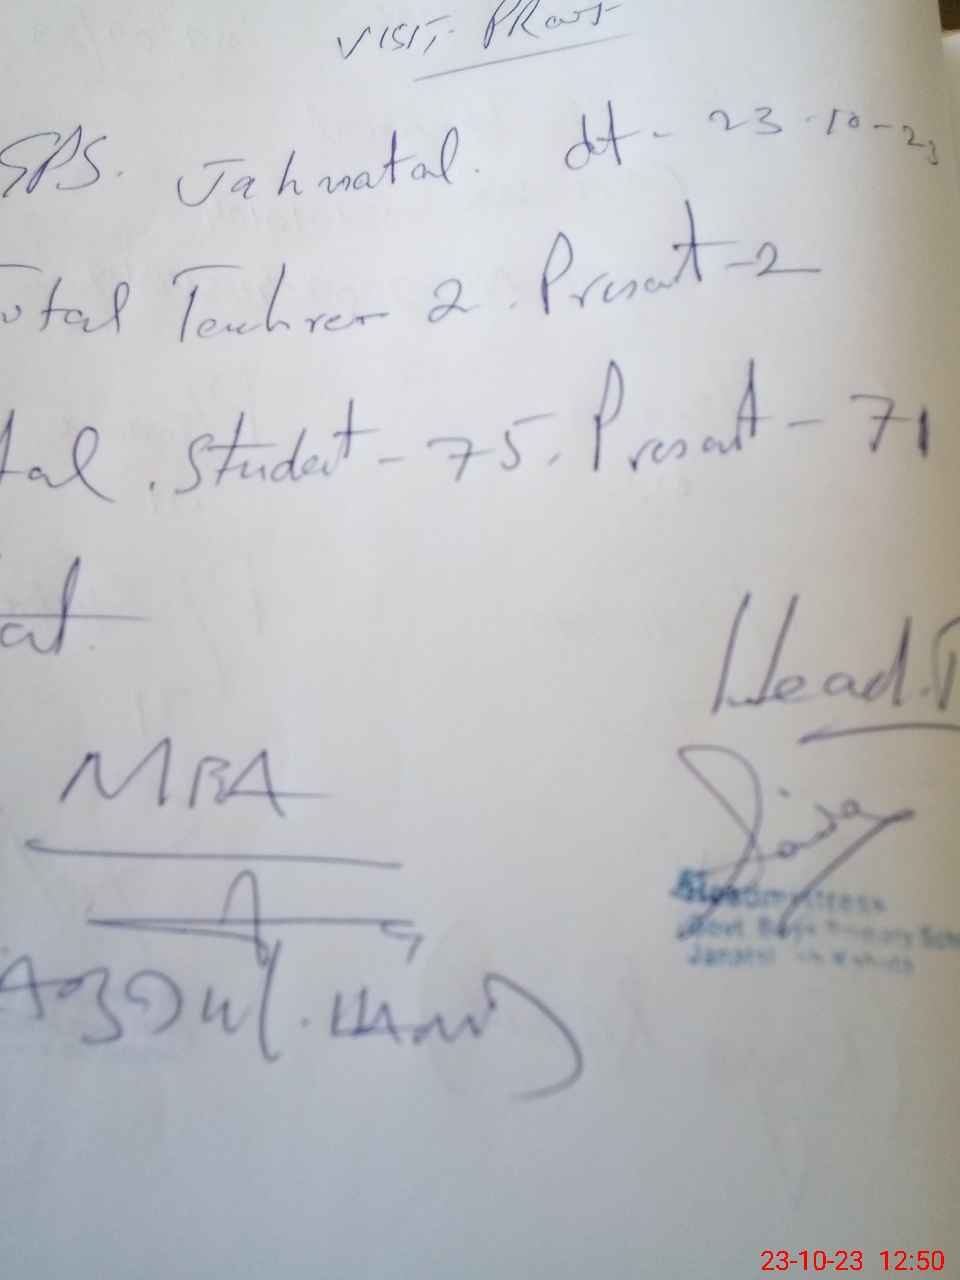 VISIT, PRout
GPS. Jahmatal. dt - 23.10-23
otal Teachrer 2. Present-2
tal. Student - 75. Present - 71
at.
Head.T
MBA
Abdul. Hamid
Headmistress
Govt. Boys Primary Scho
23-10-23 12:50